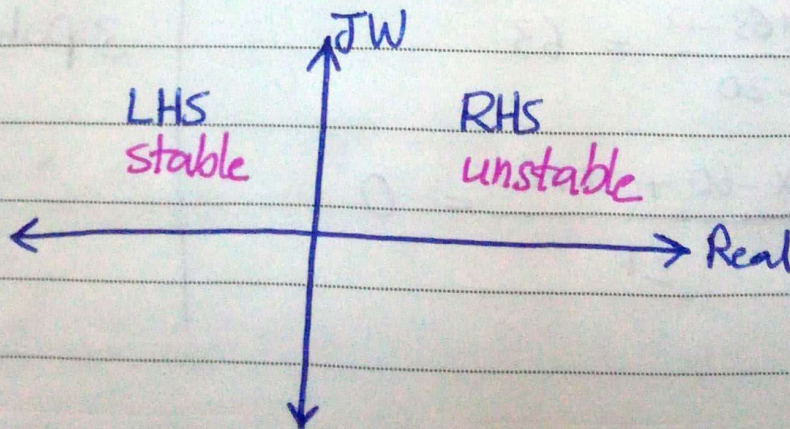 JW
LHS
stable
RHS
unstable
Real